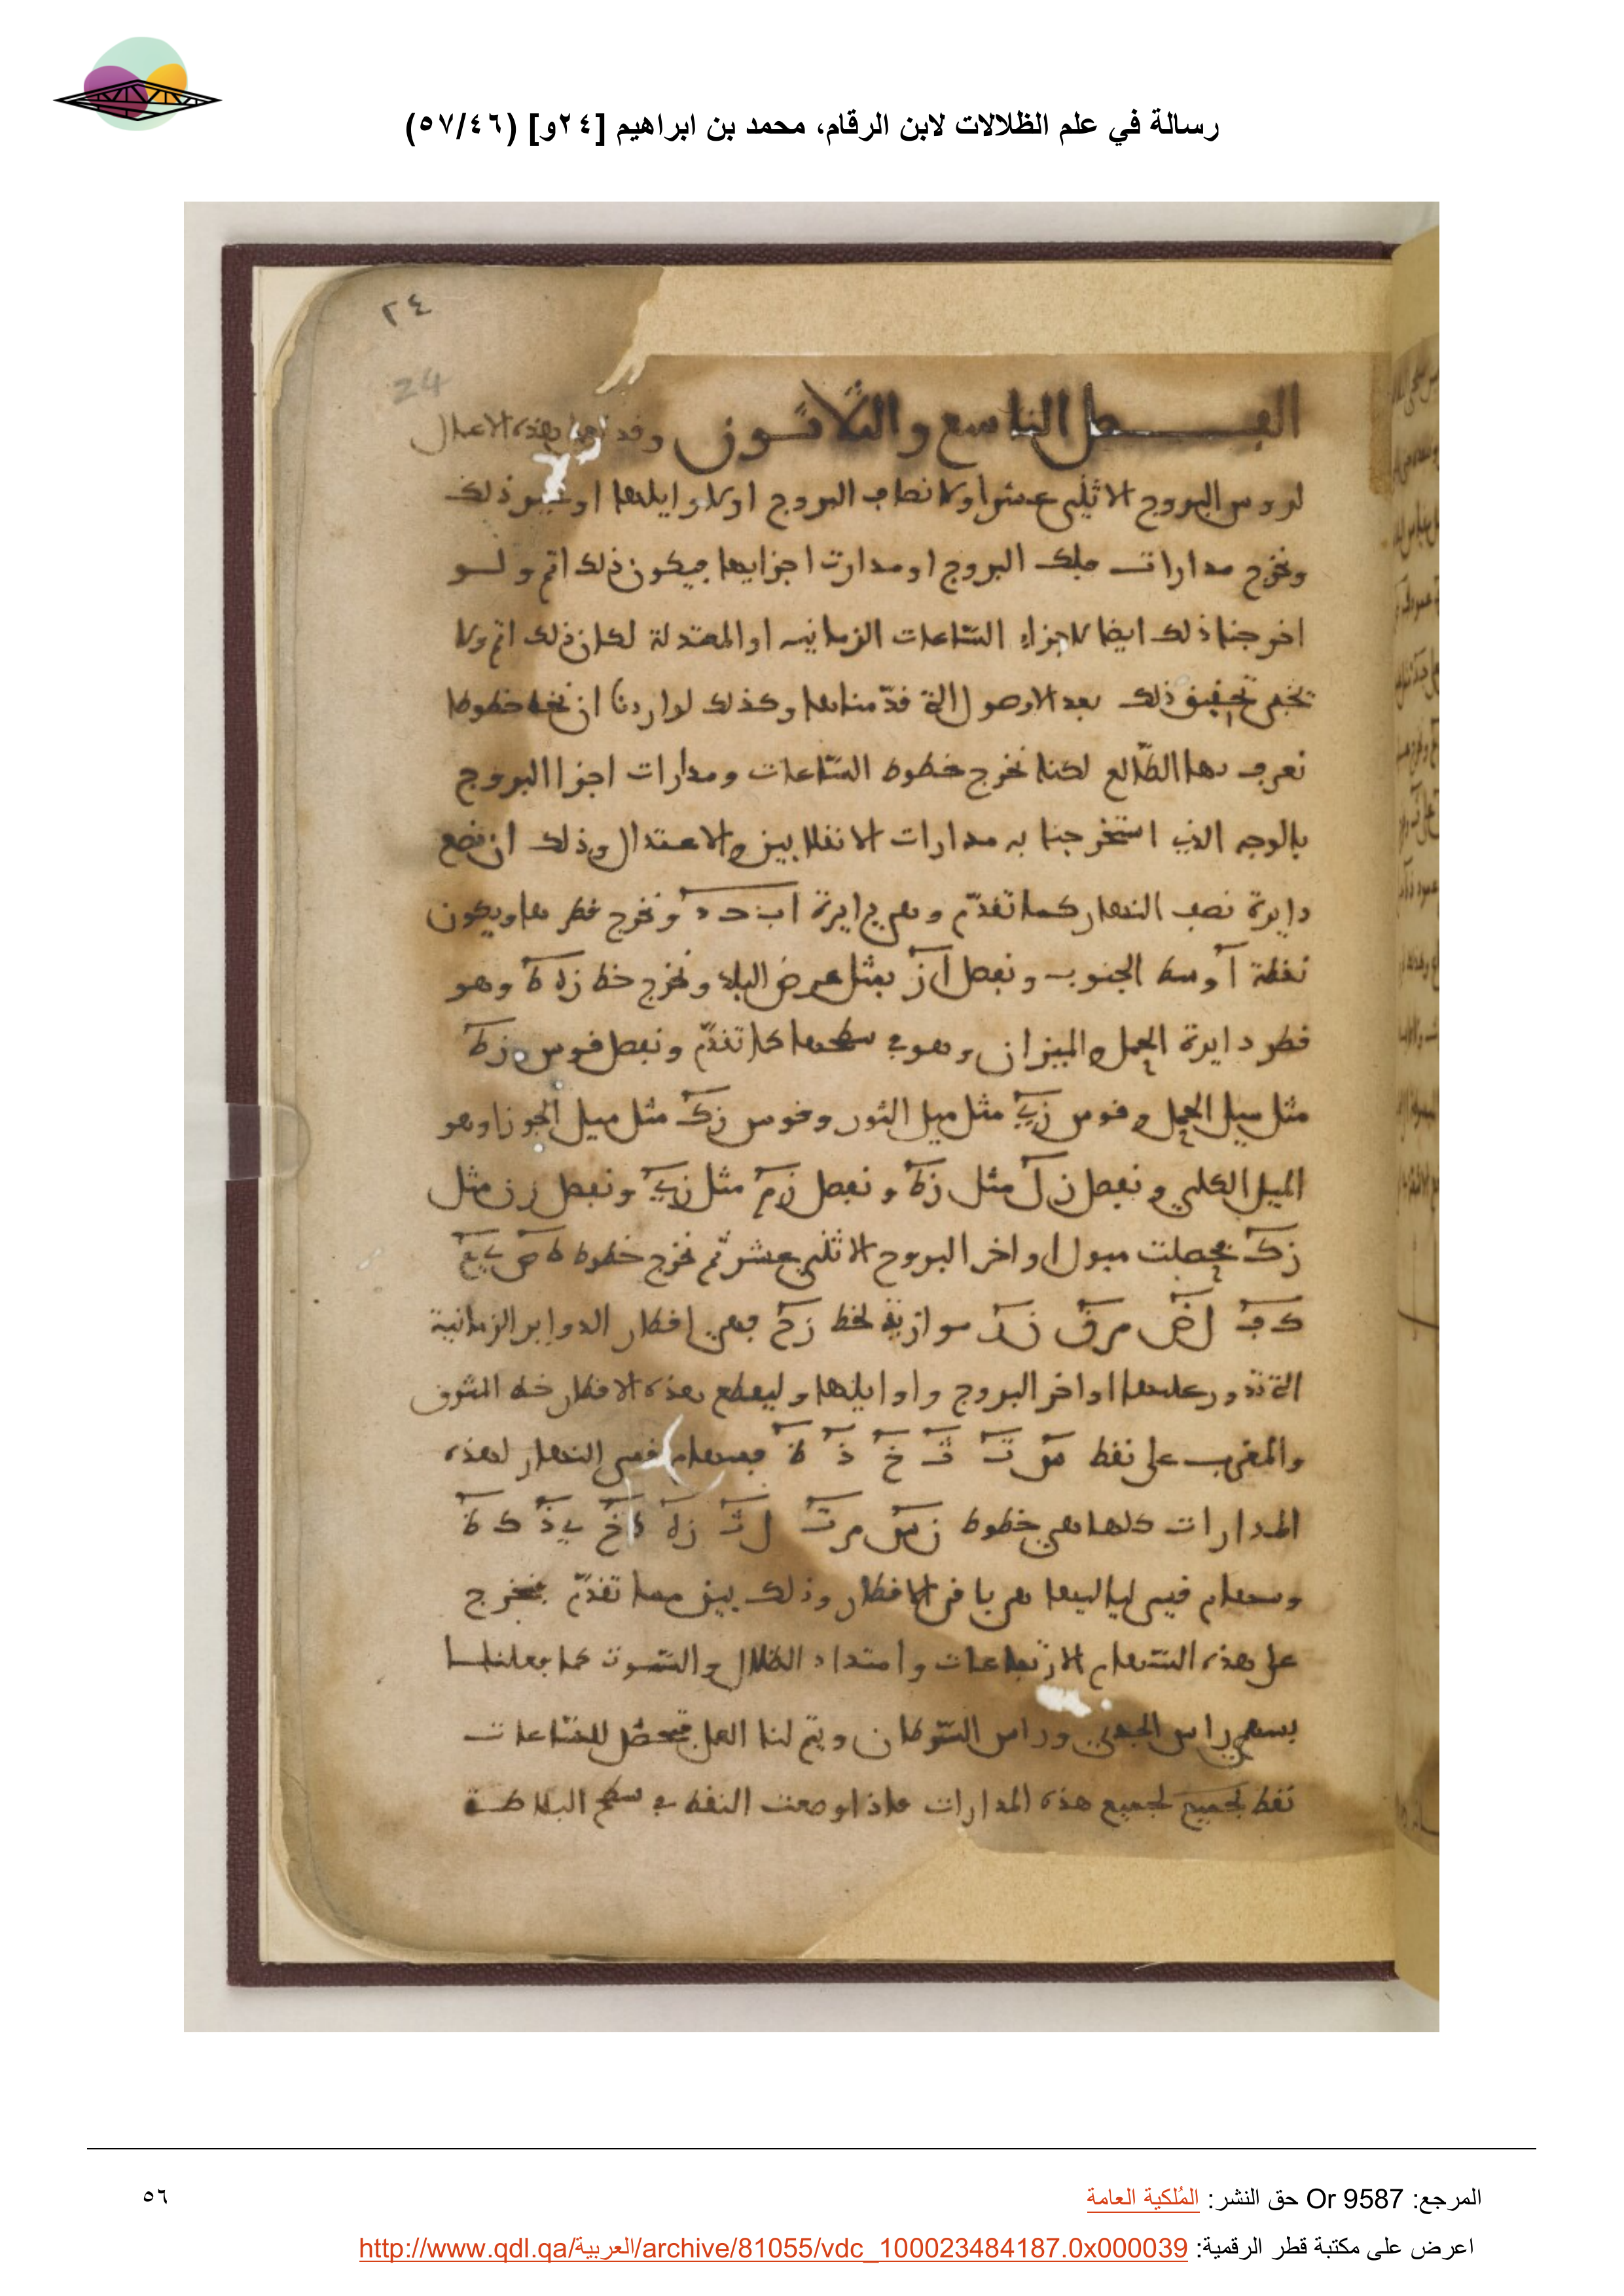 رسالة في علم الظلالات لابن الرقام، محمد بن ابراهيم [٢٤و] (٥٧/٤٦)
٢٤
24
الفصل التاسع والثلاثون وقد بهذه الاعمال
لروس البروج الاثنى عشر او لانصاف البروج او لاوايلها او غير ذلك
ونخرج مدارات فلك البروج او مدارت اجزايها فيكون ذلك اتم ولو
اخرجنا ذلك ايضا لاجزاء الساعات الزمانيه او المعتدلة لكان ذلك اتم ولا
يخفى تحقيق ذلك بعد الاصول التي قدّمناها وكذلك لو اردنا ان نخط خطوطا
نعرف بها الطّالع لكنا نخرج خطوط السّاعات ومدارات اجزا البروج
بالوجه الذي استخرجنا به مدارات الانقلابين والاعتدال وذلك ان نضع
دايرة نصف النهار كما تقدّم وهي دايرة اب حد ونخرج قطرها ويكون
نقطة آ وسط الجنوب ونفصل از مثل عرض البلد ونخرج خط زه ط وهو
قطر دايرة الحمل والميزان وهو في سطحها كما تقدّم ونفصل قوس زط
مثل ميل الحمل وقوس زي مثل ميل الثور وقوس زك مثل ميل الجوزا وهو
الميل الكلي ونفصل زل مثل زط ونفصل زم مثل زي ونفصل زن مثل
زك فحصلت ميول اواخر البروج الاثنى عشر ثم نخرج خطوط ط ص ي ع
ك ف ل ض م ق ن ر موازية لخط زح فهي اقطار الدواير الزمانية
التي تدور عليها اواخر البروج واوايلها وليقطع هذه الاقطار خط المشرق
والمغرب على نقط س ت ث خ ذ ظ قسي النهار لهذه
المدارات كلها هي خطوط ن س م ت ل ث زه ط خ ي ذ ك ظ
وسهام قسي لياليها هي باقي الاقطار وذلك بين مما تقدّم فنخرج
على هذه السّهام الارتفاعات وامتداد الظلال والسّموت كما فعلنا
بسهمي راس الجدي وراس السّرطان ويتم لنا العمل فتحصّل للسّاعات
نقط لجميع لجميع هذه المدارات فاذا وضعت النقط في سطح البلاطة
المرجع: Or 9587 حق النشر: المُلكية العامة
٥٦
اعرض على مكتبة قطر الرقمية: http://www.qdl.qa/العربية/archive/81055/vdc_100023484187.0x000039